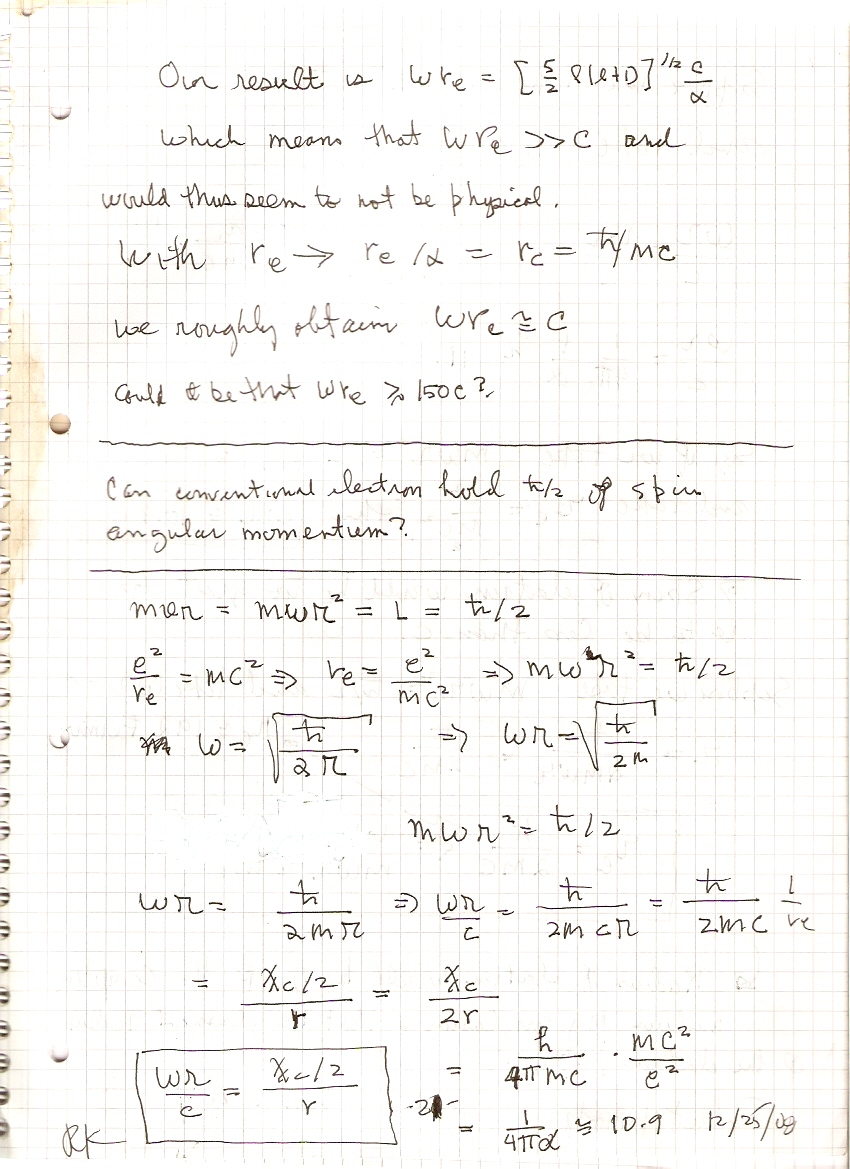 Our result is ωr_e = [5/2 ℓ(ℓ+1)]^1/2 c/α
which means that ωr_e >> c and
would thus seem to not be physical.
With r_e → r_e/α = r_c = ħ/mc
we roughly obtain ωr_c ≅ c
Could it be that ωr_e ≥ 150c?
Can conventional electron hold ħ/2 of spin
angular momentum?
mvr = mωr² = L = ħ/2
e²/r_e = mc² ⇒ r_e = e²/mc² ⇒ mωr² = ħ/2
ω = √(ħ/2r) ⇒ ωr = √(ħ/2m)
mωr² = ħ/2
ωr = ħ/2mr ⇒ ωr/c = ħ/2mcr = ħ/2mc 1/re
= ƛc/2 / r = ƛc / 2r
ωr/c = ƛc/2 / r
= h/4πmc · mc²/e²
-21-
= 1/4πα ≅ 10.9 12/25/08
RK